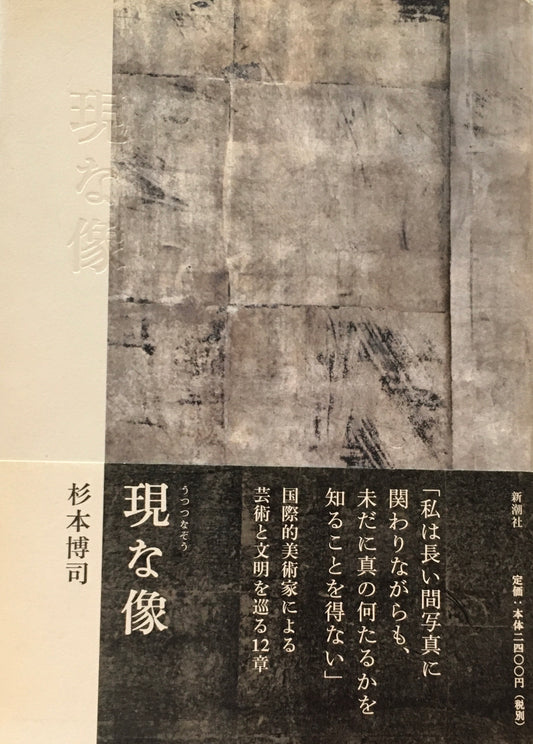 現な像
新潮社
定価：本体二四〇〇円（税別）
「私は長い間写真に
関わりながらも、
未だに真の何たるかを
知ることを得ない」
国際的美術家による
芸術と文明を巡る12章
うつつなぞう
現な像
杉本博司